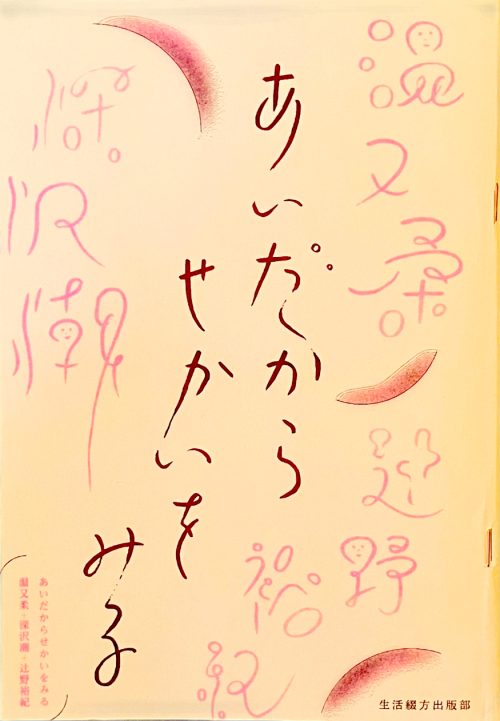 温又柔
辻野
裕紀
あいだから
せかいを
みる
深沢潮
あいだからせかいをみる
温又柔・深沢潮・辻野裕紀
生活綴方出版部